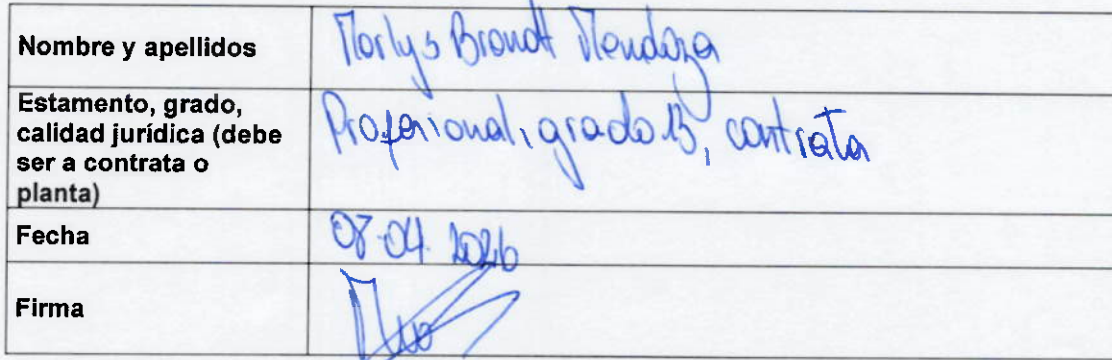 Nombre y apellidos
Marlys Brandt Mendoza
Estamento, grado,
calidad jurídica (debe
ser a contrata o
planta)
Profesional, grado 13, contrata
Fecha
08-04 2026
Firma